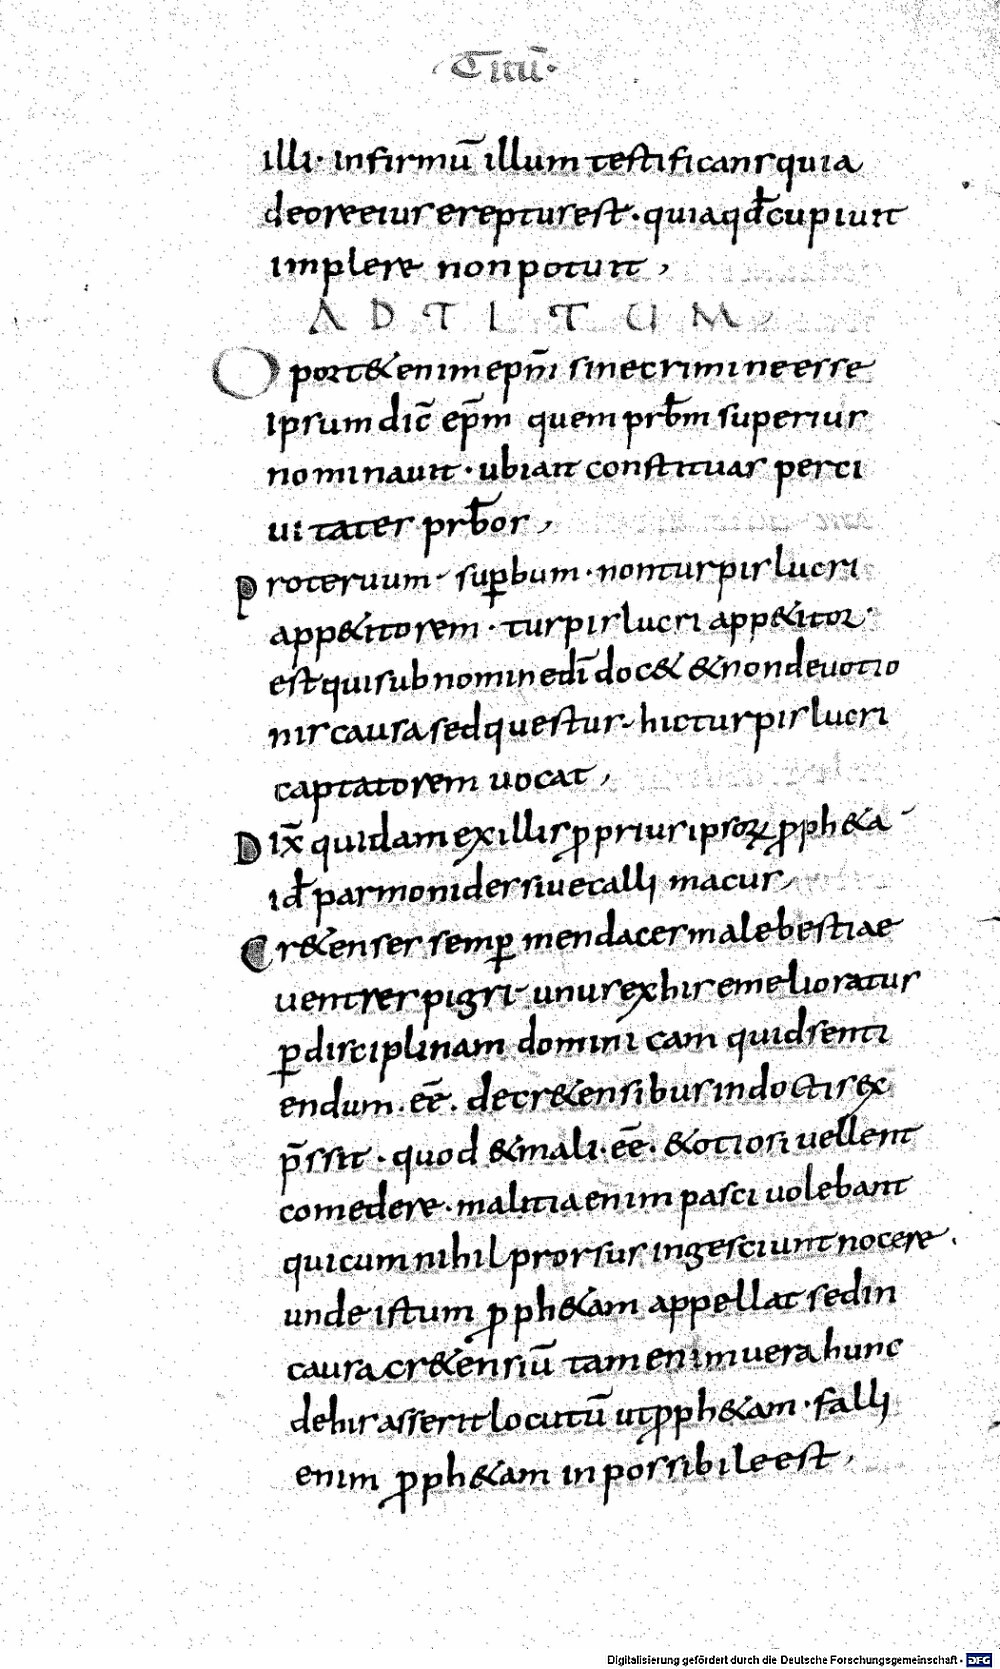 Titū·
illi· infirmū illum testificans quia
de ore eius ereptus est· quia qd̄ cupiuit
implere non potuit,
AD TITUM,
Oport& enim ep̄m̄ sine crimine esse
ipsum dic̄ ep̄m quem prb̄m superius
nominauit· ubi ait constituas per ci
uitates prb̄os,
Proteruum· suꝑbum· non turpis lucri
app&itorem· turpis lucri app&itor·
est qui sub nomine dī doc& & non deuotio
nis causa sed questus· hic turpis lucri
captatorem uocat,
Dix̄ quidam ex illis ꝓprius ipsoꝝ ꝓph&a·
id̄ parmonides siue calli macus,
Cr&enses semꝑ mendaces male bestiae
uentres pigri· unus ex his emelioratus
ꝑ disciplinam domini cam quid senti
endum· eē· de cr&ensibus indoctis ex
p̄ssit· quod & mali· eē· & otiosi uellent
comedere· malitia enim pasci uolebant
qui cum nihil prorsus ing esciunt nocere·
unde istum ꝓph&am appellat sed in
causa cr&ensiū tam enim uera hunc
de his asserit locutū ut ꝓph&am· falli
enim ꝓph&am inpossibile est,
Digitalisierung gefördert durch die Deutsche Forschungsgemeinschaft - DFG